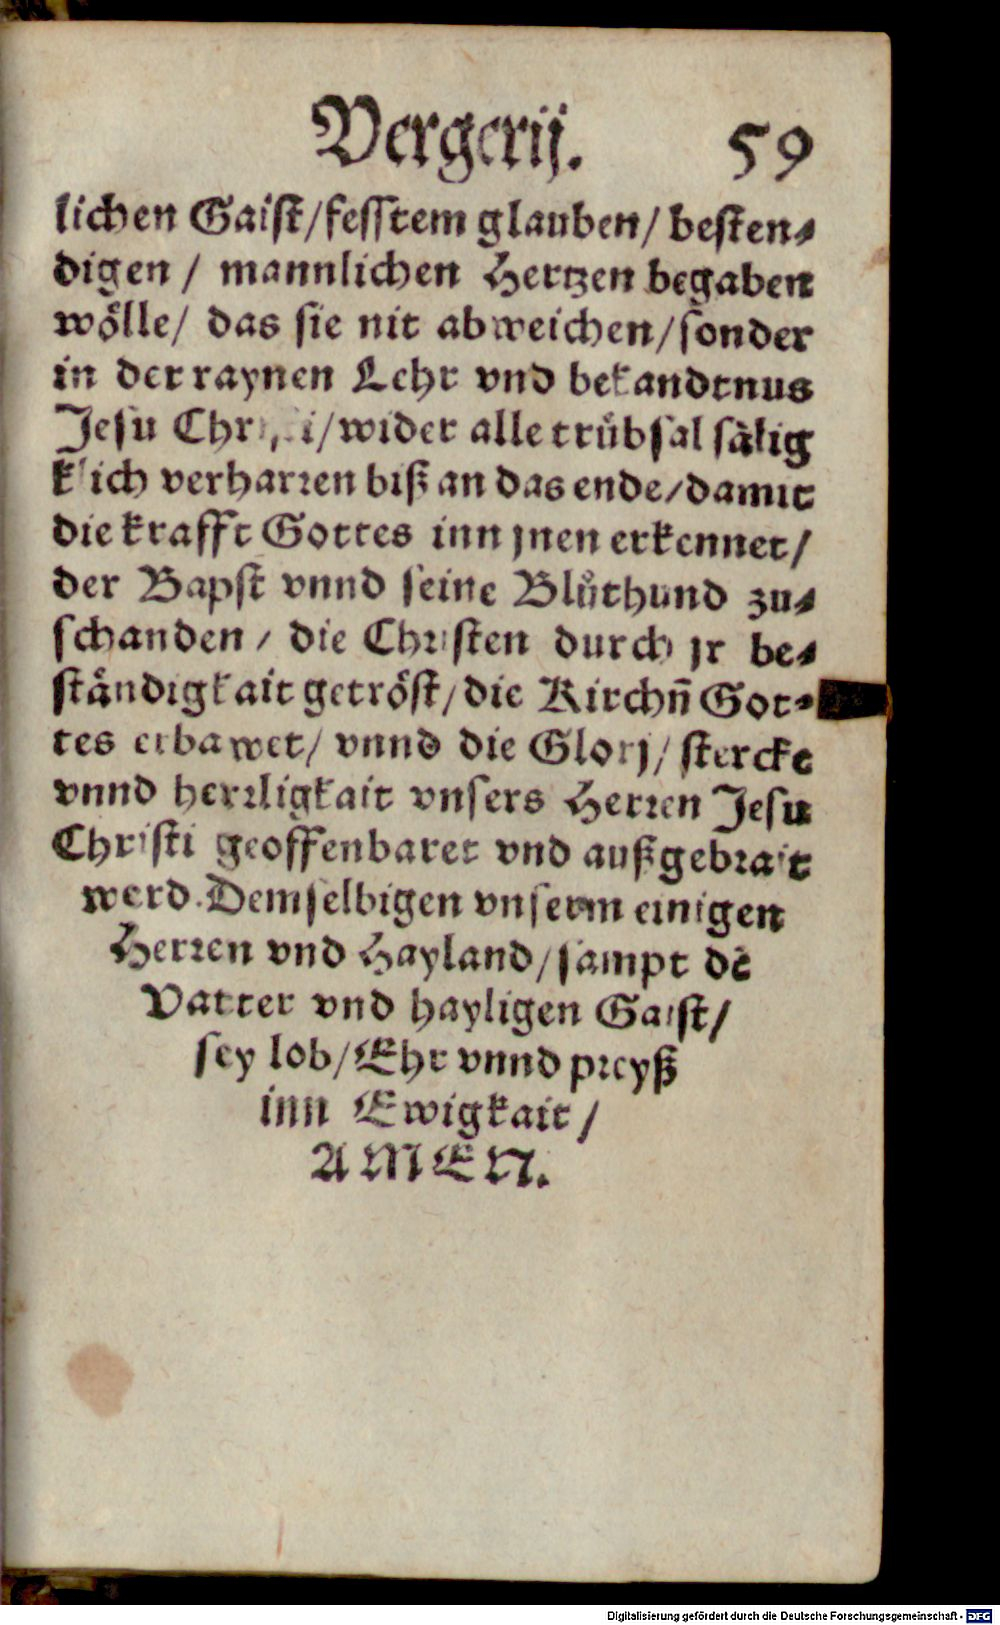 Vergerij. 59
lichen Gaist/fesstem glauben/ besten⸗
digen / mannlichen Hertzen begaben
wölle/ das sie nit abweichen/sonder
in der raynen Lehr vnd bekandtnus
Jesu Christi/wider alle trübsal sälig
klich verharren biß an das ende/damit
die krafft Gottes inn jnen erkennet/
der Bapst vnnd seine Blůthund zu⸗
schanden / die Christen durch jr be⸗
ständigkait getröst/die Kirchñ Got⸗
tes erbawet/ vnnd die Glorj/ stercke
vnnd herrligkait vnsers Herren Jesu
Christi geoffenbaret vnd außgebrait
werd. Demselbigen vnserm einigen
Herren vnd Hayland/sampt dē
Vatter vnd hayligen Gaist/
sey lob/Ehr vnnd preyß
inn Ewigkait/
AMEN.
Digitalisierung gefördert durch die Deutsche Forschungsgemeinschaft - DFG